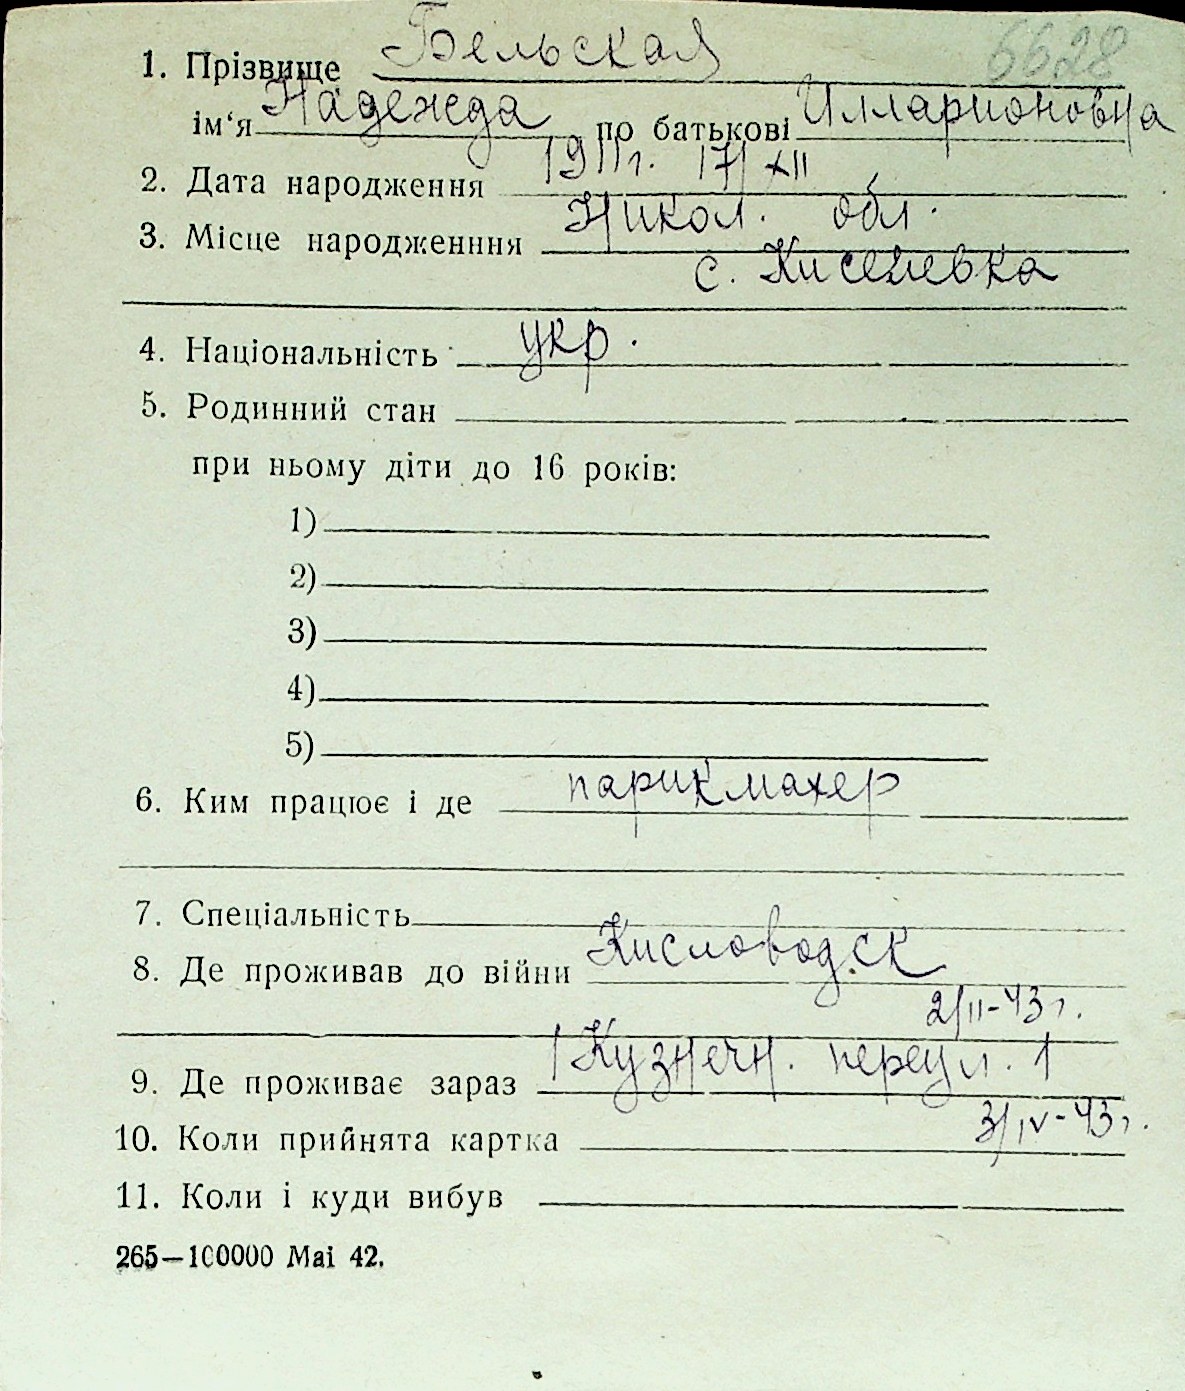 6628
1. Прізвище Бельская
ім‘я Надежда по батькові Илларионовна
2. Дата народження 1911 г. 17/XII
3. Місце народженння Никол. обл.
с. Киселевка
4. Національність укр.
5. Родинний стан
при ньому діти до 16 років:
1)
2)
3)
4)
5)
6. Ким працює і де парикмахер
7. Спеціальність
8. Де проживав до війни Кисловодск
2/II-43 г.
9. Де проживає зараз Кузнечн. переул. 1
10. Коли прийнята картка 3/IV-43 г.
11. Коли і куди вибув
265—100000 Mai 42.